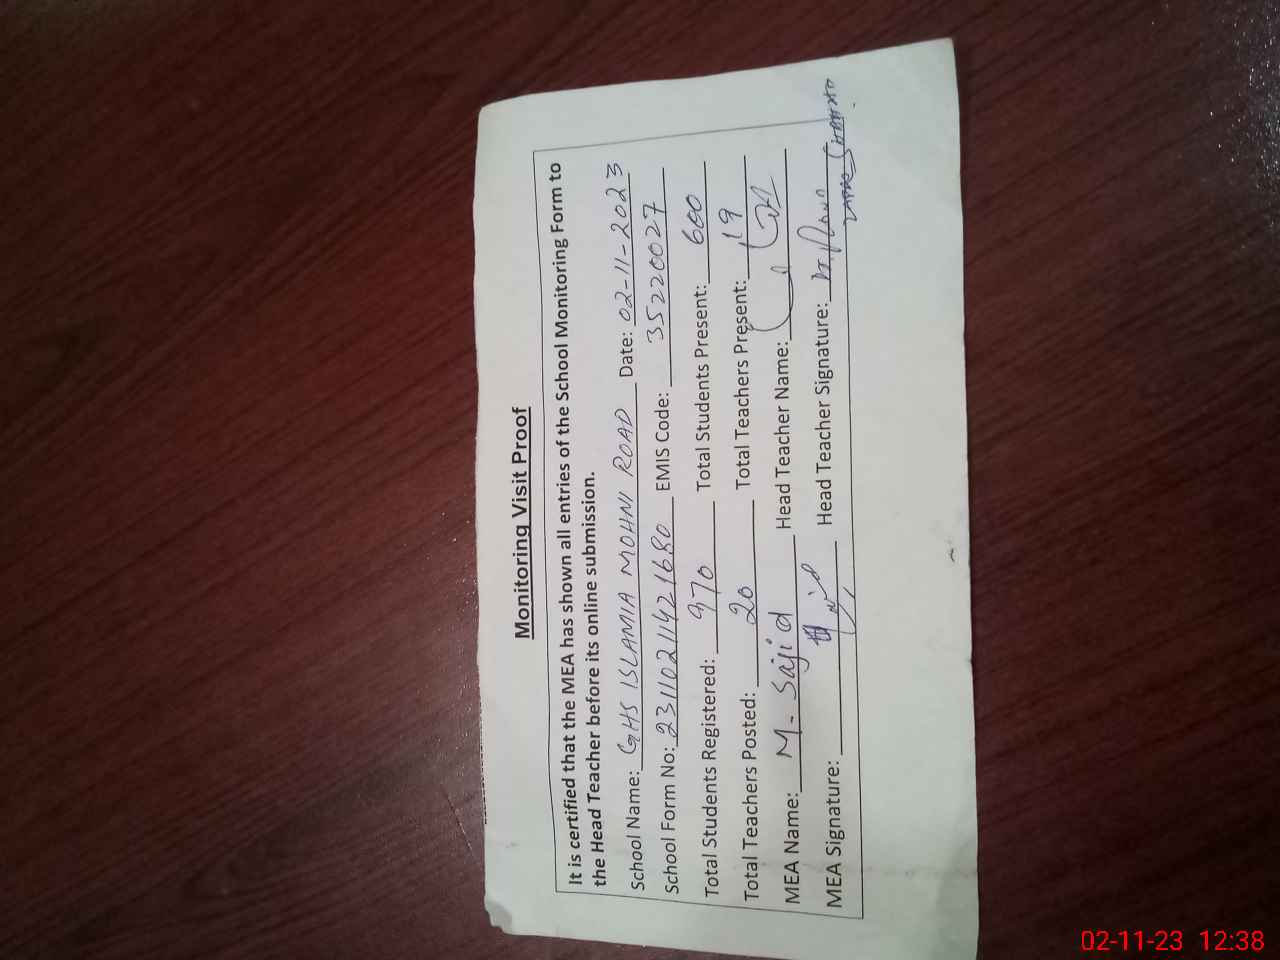 Monitoring Visit Proof
It is certified that the MEA has shown all entries of the School Monitoring Form to
the Head Teacher before its online submission.
School Name: GHS ISLAMIA MOHNI ROAD Date: 02-11-2023
School Form No: 2311021421680 EMIS Code: 35220027
Total Students Registered: 970 Total Students Present: 600
Total Teachers Posted: 20 Total Teachers Present: 19
MEA Name: M. Sajid Head Teacher Name:
MEA Signature: Head Teacher Signature:
02-11-23 12:38